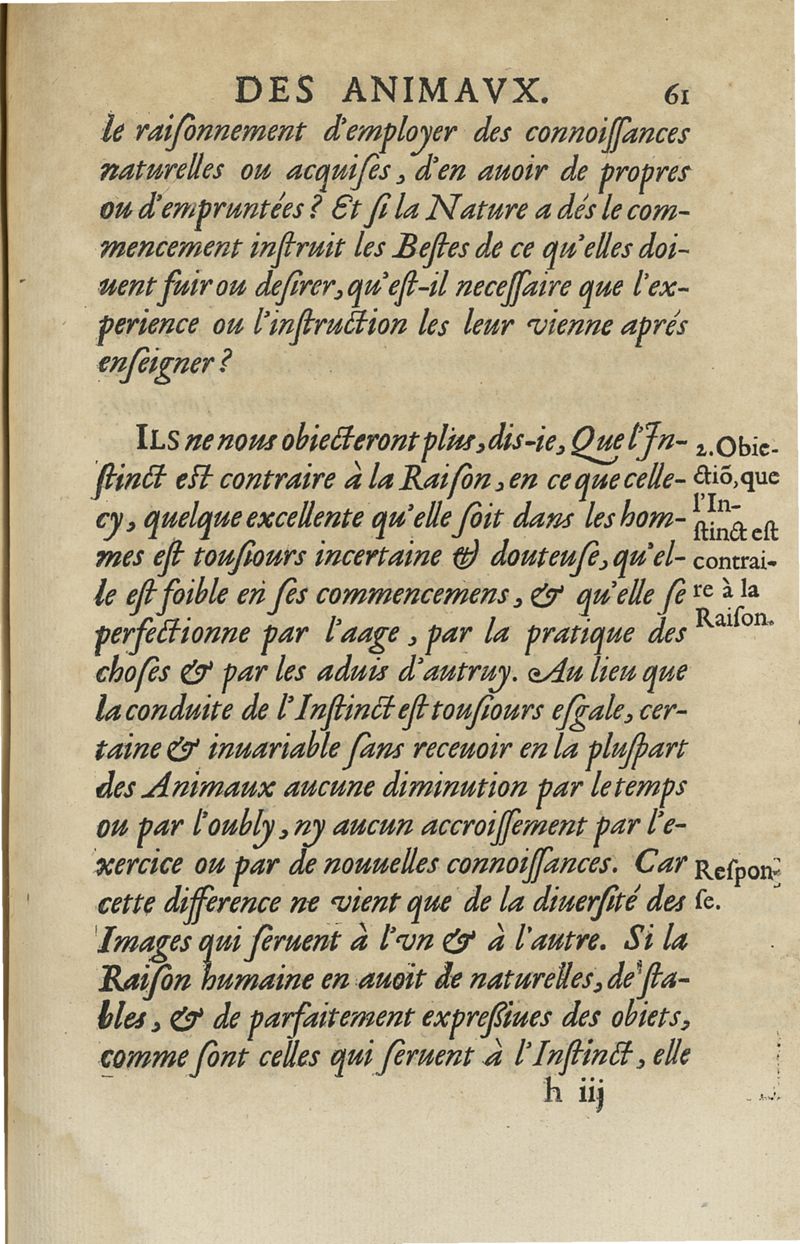 DES ANIMAVX. 61
le raiſonnement d'employer des connoiſſances
naturelles ou acquiſes, d'en auoir de propres
ou d'empruntées? Et ſi la Nature a dés le com-
mencement inſtruit les Beſtes de ce qu'elles doi-
uent fuir ou deſirer, qu'eſt-il neceſſaire que l'ex-
perience ou l'inſtruction les leur vienne aprés
enſeigner?
ILS ne nous obiecteront plus, dis-ie, Que l'In-
ſtinct eſt contraire à la Raiſon, en ce que celle-
cy, quelque excellente qu'elle ſoit dans les hom-
mes eſt touſiours incertaine & douteuſe, qu'el-
le eſt foible en ſes commencemens, & qu'elle ſe
perfectionne par l'aage, par la pratique des
choſes & par les aduis d'autruy. Au lieu que
la conduite de l'Inſtinct eſt touſiours eſgale, cer-
taine & inuariable ſans receuoir en la pluſpart
des Animaux aucune diminution par le temps
ou par l'oubly, ny aucun accroiſſement par l'e-
xercice ou par de nouuelles connoiſſances. Car
cette difference ne vient que de la diuerſité des
Images qui ſeruent à l'vn & à l'autre. Si la
Raiſon humaine en auoit de naturelles, de ſta-
bles, & de parfaitement expreſſiues des obiets,
comme ſont celles qui ſeruent à l'Inſtinct, elle
2. Obie-
ctiõ, que
l'In-
ſtinct eſt
contrai-
re à la
Raiſon.
Reſpon-
ſe.
h iij